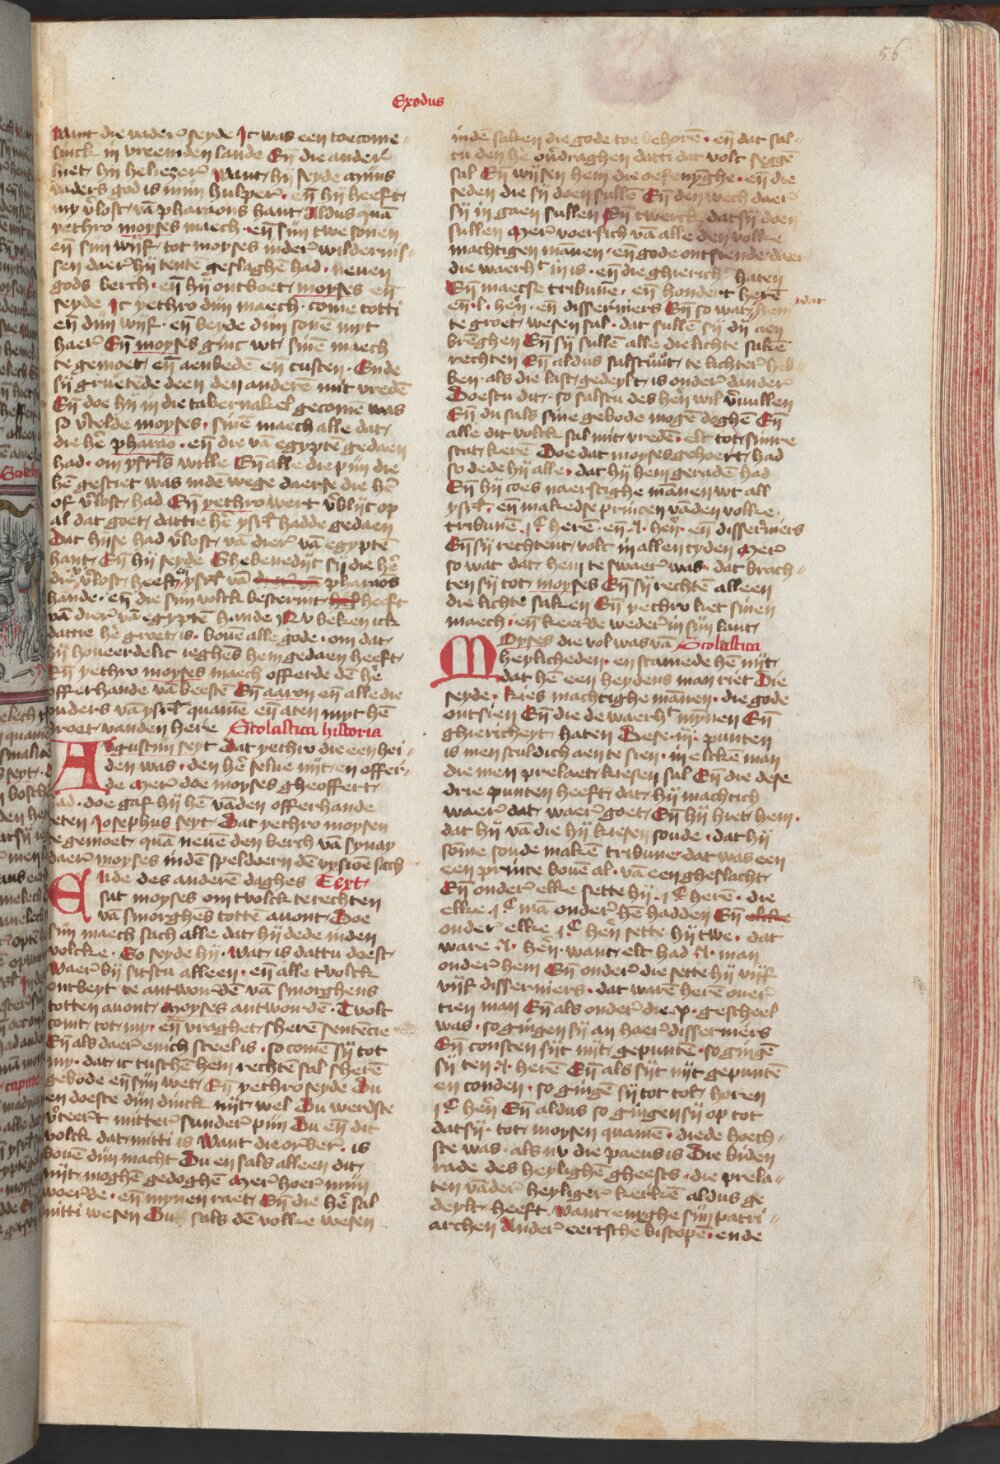 56
Exodus
want die vader seyde Ic was een toecome-
linck in vreemden lande En̄ die ander
hiet hij heliezer Want hij seyde mijns
vaders god is mijn hulper · en̄ hij heeft
my v̓lost vā pharaons hant Aldus quā
yethro moyses maech en̄ sijn twe sonen
en̄ sijn wijf tot moyses inder wildernis-
sen daer hij tentē geslaghē had neuen
gods berch · en̄ hij ontboet moyses en̄
seyde Ic yethro dijn maech come totti
en̄ dijn wijf · en̄ beyde dijn sonē myt
haer En̄ moyses ginc wt sinē maech
te gemoet en̄ aenbedē en̄ custen · Ende
sij gruetede deen den anderē mit vredē
En̄ doe hij in die tabernakel gecomē was
so v̓telde moyses sinē maech alle dat
die hē pharao · en̄ die vā egyptē gedaen
had · om ysrl̄s wille En̄ alle die pijn die
hē gesciet was indē wege daerse die hē
of v̓lost had En̄ yethro wert v̓blijt op
al dat goet dattie hē ysrl̄ hadde gedaen
Dat hijse had v̓lost vā dier vā egyptē
hant En̄ hij seyde Ghebenedijt sij die hē
die v̓lost heeft ysrl̄ vā pharaos
hande · en̄ die sijn volck bescermt heeft
vā dier vā egyptē hande Nv beken ick
dattie hē groet is bouē alle gode · om dat
hij houeerdelic ieghēs hem gedaen heeft
En̄ yethro moyses maech offerde dē hē
offerhande vā beestē En̄ aaron en̄ alle die
ouders vā ysrl̄ quamē en̄ aten myt hē
broet vanden here Scolastica historia
Agustijn seyt Dat yethro die een hei-
den was · den hē selue nijt en offer-
de Mer doe moyses gheoffert
had · doe gaf hij hē vāden offerhande
eten Josephus seyt Dat yethro moysen
te gemoet quā neuē den berch vā synay
daer moyses indē speldoern dē vysioē sach
Ende des anderē daghes Text
sat moyses om tvolck te rechten
vā smorghēs tottē auont Doe
sijn maech sach alle dat hij dede inden
volcke · So seyde hij · Wat is dattu doest
Waer bij sitstu alleen · en̄ alle tvolck
ontbeyt te antwordē vā smorghens
totten auont Moyses antwordē · Tvolt
comt tot my · en̄ vraghet sherē sentēcie
En̄ als daer enich sceel is · so comē sij tot
my · dat ic tuschē hem rechtē sal sherē
gebode en̄ sijn wet En̄ yethro seyde Du
en doeste dijn dinck nijt wel Du werdste
v̓teert mitter sunder pijn Du en̄ dit
volck dat mitti is Want die orber is
bouē dijn macht Du en sals alleen dit
nijt moghē gedoghē Mer hoer mijn
woerde · en̄ mynen raet En̄ die hē sal
mitti wesen Du sals dē volke wesen
indē saken die gode toe behorē · en̄ dat sal-
tu den hē oūdraghen datti dat volc seggē
sal En̄ wijsen hem die oefenyghe · en̄ die
seden die sij doen sullē En̄ den wech daer
sij in gaen sullen En̄ twerck dat sij doen
sullen Mer voersich vā alle den volke
machtigen mānen · en̄ gode ontsiende daer
die waerht̓ in is · en̄ die ghiericht̓ haten
En̄ maecse tribunē · en̄ hondert herē
en̄ · l · hērn · en̄ disseniers En̄ so wat hem dat
te groet wesen sal · dat sullē sij dij aen
brēghen En̄ sij sullē alle die lichte sakē
rechten En̄ aldus salstuut te lichter heb-
ben · als die last gedeylt is onder dander
Doestu dit · so salstu des hēn wil v̓uullen
En̄ du sals sine gebode mogē deghē En̄
alle dit volck sal mit vredē · elc tot sijnre
stat kerē Doe dat moyses gehoert had
so dede hij alle · dat hij hem geradē had
En̄ hij coes naerstighe mānen wt all
ysrl̄ · en̄ makedse princen vāden volke ·
tribunē · jC herē · en̄ · l · hērn · en̄ disseniers
En̄ sij rechtent volc in allen tyden Mer
so wat dat hem te swaer was · dat brach-
ten sij tot moyses En̄ sij rechtē alleen
die lichte saken En̄ yethro liet sinen
maech · en̄ keerde weder in sijn lant
Moyses die vol was vā Scolastica
heylicheden · en scaamde hē nijt
dat hē een heydens man riet Die
seyde · kies machtighe mānen · die gode
ontsien En̄ die de waerht̓ mynen En̄
ghiericheyt haten Dese · iij · punten
is men sculdich aen te sien · in elckē man
die men prelaet kiesen sal En̄ die dese
drie punten heeft dat hij machtich
waer dat waer goet En̄ hij hiet hem ·
dat hij vā die hij kiesen soude · dat hij
somē soude makē tribune dat was een
een prince bouē al · vā een gheslacht
En̄ onder elke sette hij · jC herē · die
elke · jC mā onder hē hadden En̄ elcke
onder elke jC hērn sette hij twe · dat
ware · l · hērn · want elt had · l · man
onder hem En̄ onder die sette hij vijf
vijf disseniers · dat warē herē ouer
tien man En̄ als onder die · x · gescheel
was · so gingen sij an haer disseniers
En̄ consten sijt nijt gepuntē · so gingē
sij ten · l · herē En̄ als sijt nijt gepuntē
en conden · so gingē sij tot tot horen
jC hērn En̄ aldus so gingen sij op tot
dat sij · tot moysen quamē · die de hoech-
ste was · als nv die paeus is Die biden
rade des heylighē gheests · die prela-
ten vāder heyliger kerkē aldus ge
deylt heeft Want enyghe sijn patri-
archen Ander eertsche biscopē · ende